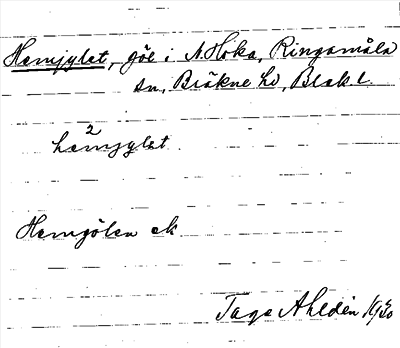 Hemjylet, göl i N. Hoka, Ringamåla
sn, Bräkne hd, Blek l.
2
hemjylet.
Hemgölen ek
Tage Ahldén 1930